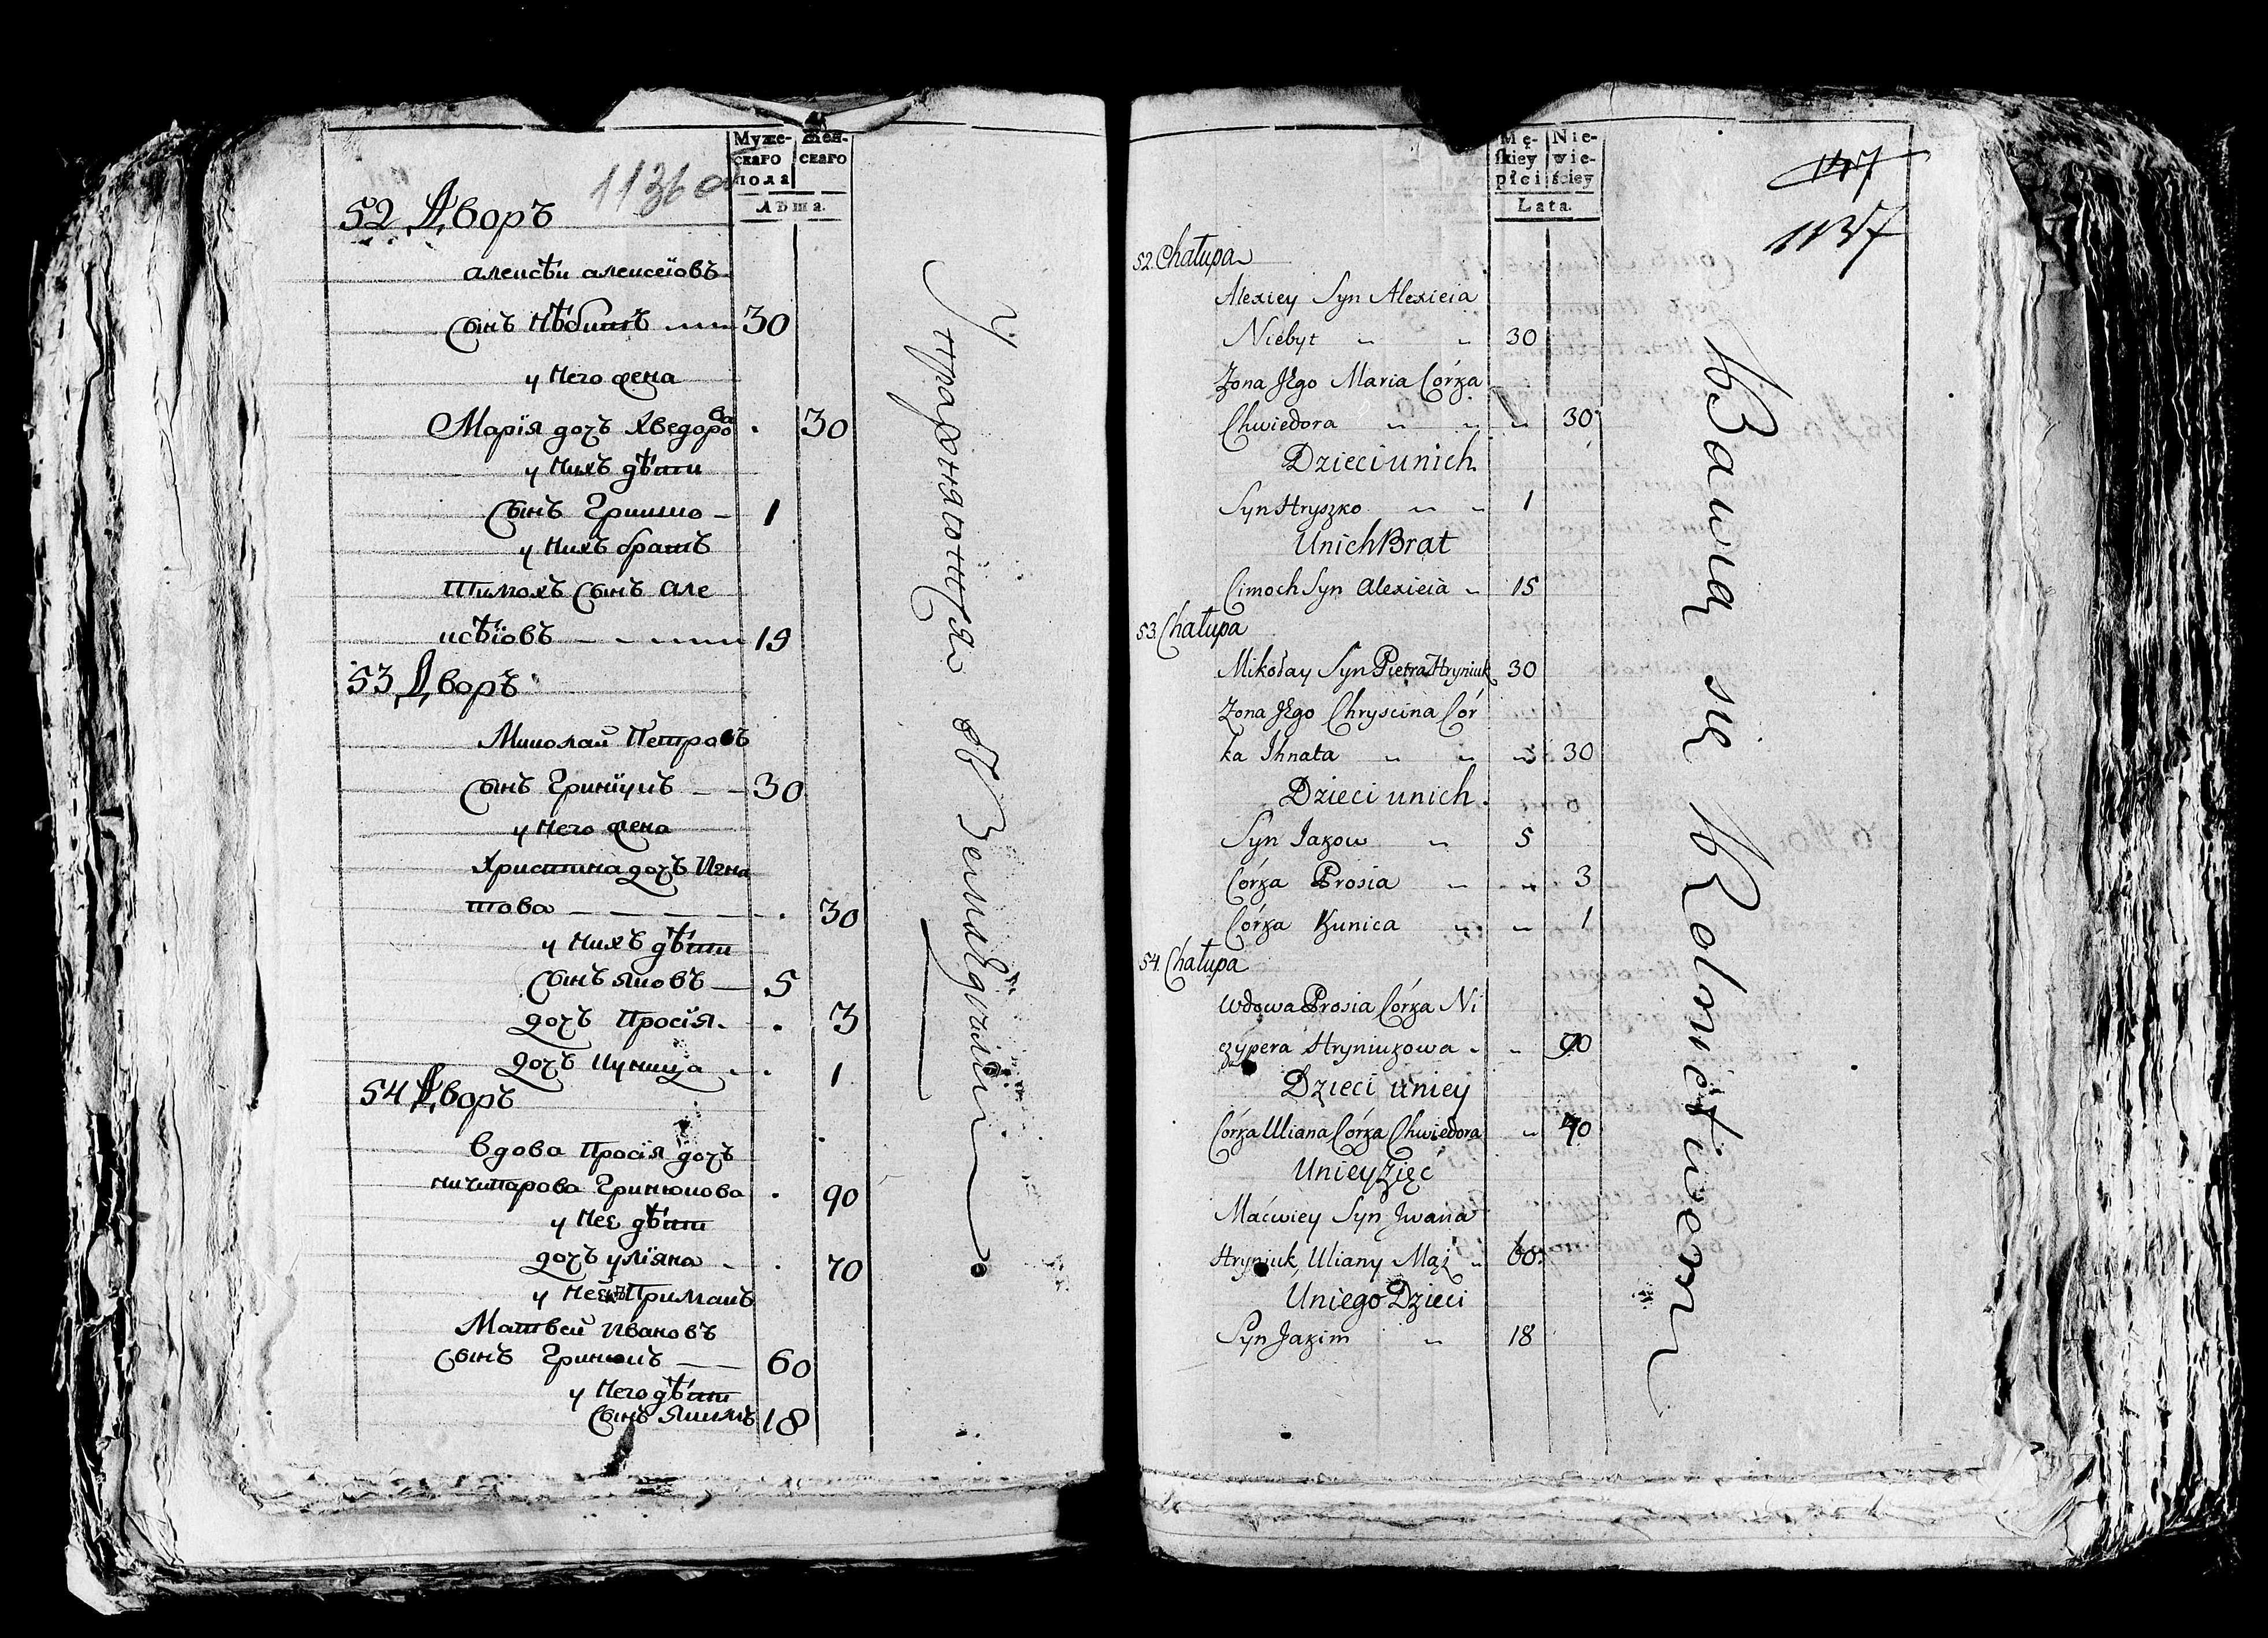 Муже-
скаго
пола
Жен-
скаго
Лѣта.
1136 об
52 Дворъ
алексѣи алексеїовъ
сынъ Нѣбытъ 30
у Него жена
Марїя дочъ Хведорова 30
у Нихъ дѣти
сынъ Гришко 1
у Нихъ братъ
Тимохъ сынъ але
ксѣїовъ 15
53 Дворъ
Миколай Петровъ
сынъ Гринїукъ 30
у Него жена
Христина дочъ Игна
това 30
у Нихъ дѣти
сынъ яковъ 5
дочъ Просїя 3
дочъ Куница 1
54 Дворъ
Вдова Просїя дочъ
ничипарова Гринюкова 90
у Нее дѣти
дочъ улїяна 70
у Нее Примакъ
Матвей Ивановъ
сынъ Гринюкъ 60
у Него дѣти
сынъ якимъ 18
Упражняются въ Земледѣлїи
Mę-
skiey
płci
Nie-
wie-
ściey
Lata.
147
1137
52. Chałupa
Alexiey Syn Alexieia
Niebyt 30
Zona Jego Maria Córka
Chwiedora 30
Dzieci u nich
Syn Hryszko 1
U nich Brat
Cimoch Syn Alexieia 15
53. Chałupa
Mikołay Syn Pietra Hryniuk 30
Zona Jego Chryscina Cór
ka Ihnata 30
Dzieci u nich
Syn Jakow 5
Córka Prosia 3
Córka Kunica 1
54. Chałupa
Wdowa Prosia Córka Ni
czypera Hryniukowa 90
Dzieci u niey
Córka Uliana Córka Chwiedora 70
U niey Zięć
Maćwiey Syn Jwana
Hryniuk, Uliany Mąż 60
U niego Dzieci
Syn Jakim 18
Bawią się Rolnictwem